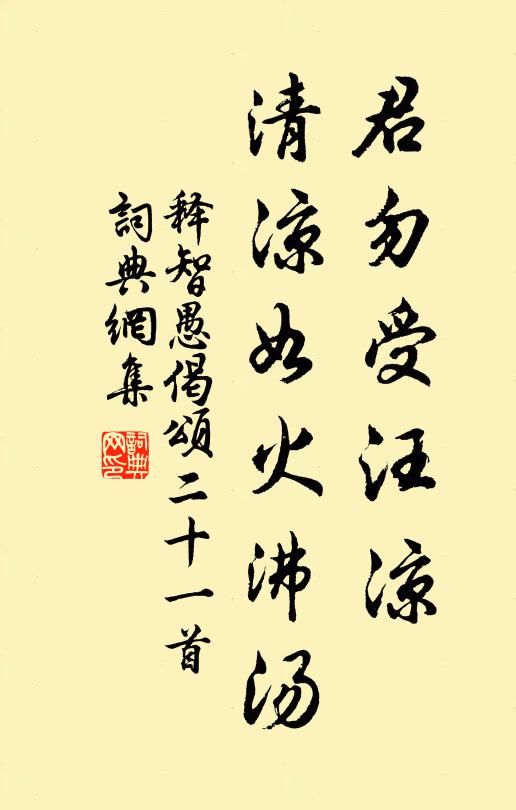 君勿受汪凉
清凉如火沸汤
释智愚偈頌二十一首
詞典網集
詞典
网印